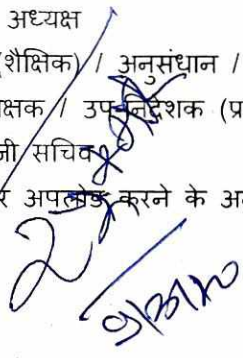 अध्यक्ष
शैक्षिक) / अनुसंधान /
क्षक / उप-निदेशक (प्र
नी सचिव
र अपलोड करने के अ